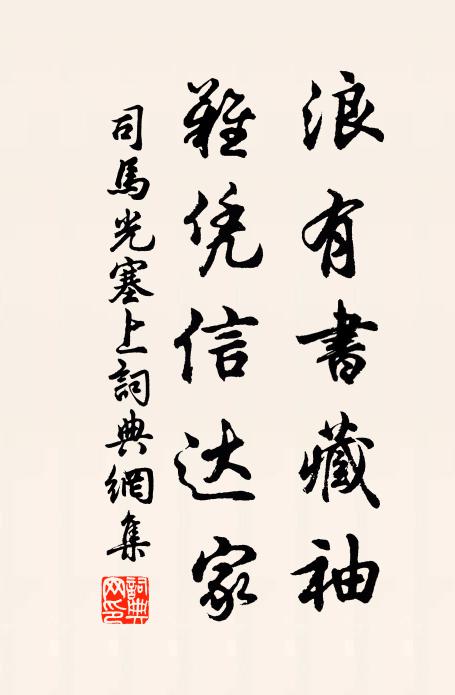 浪有書藏袖
難凭信达家
司馬光塞上詞典網集
詞典网印